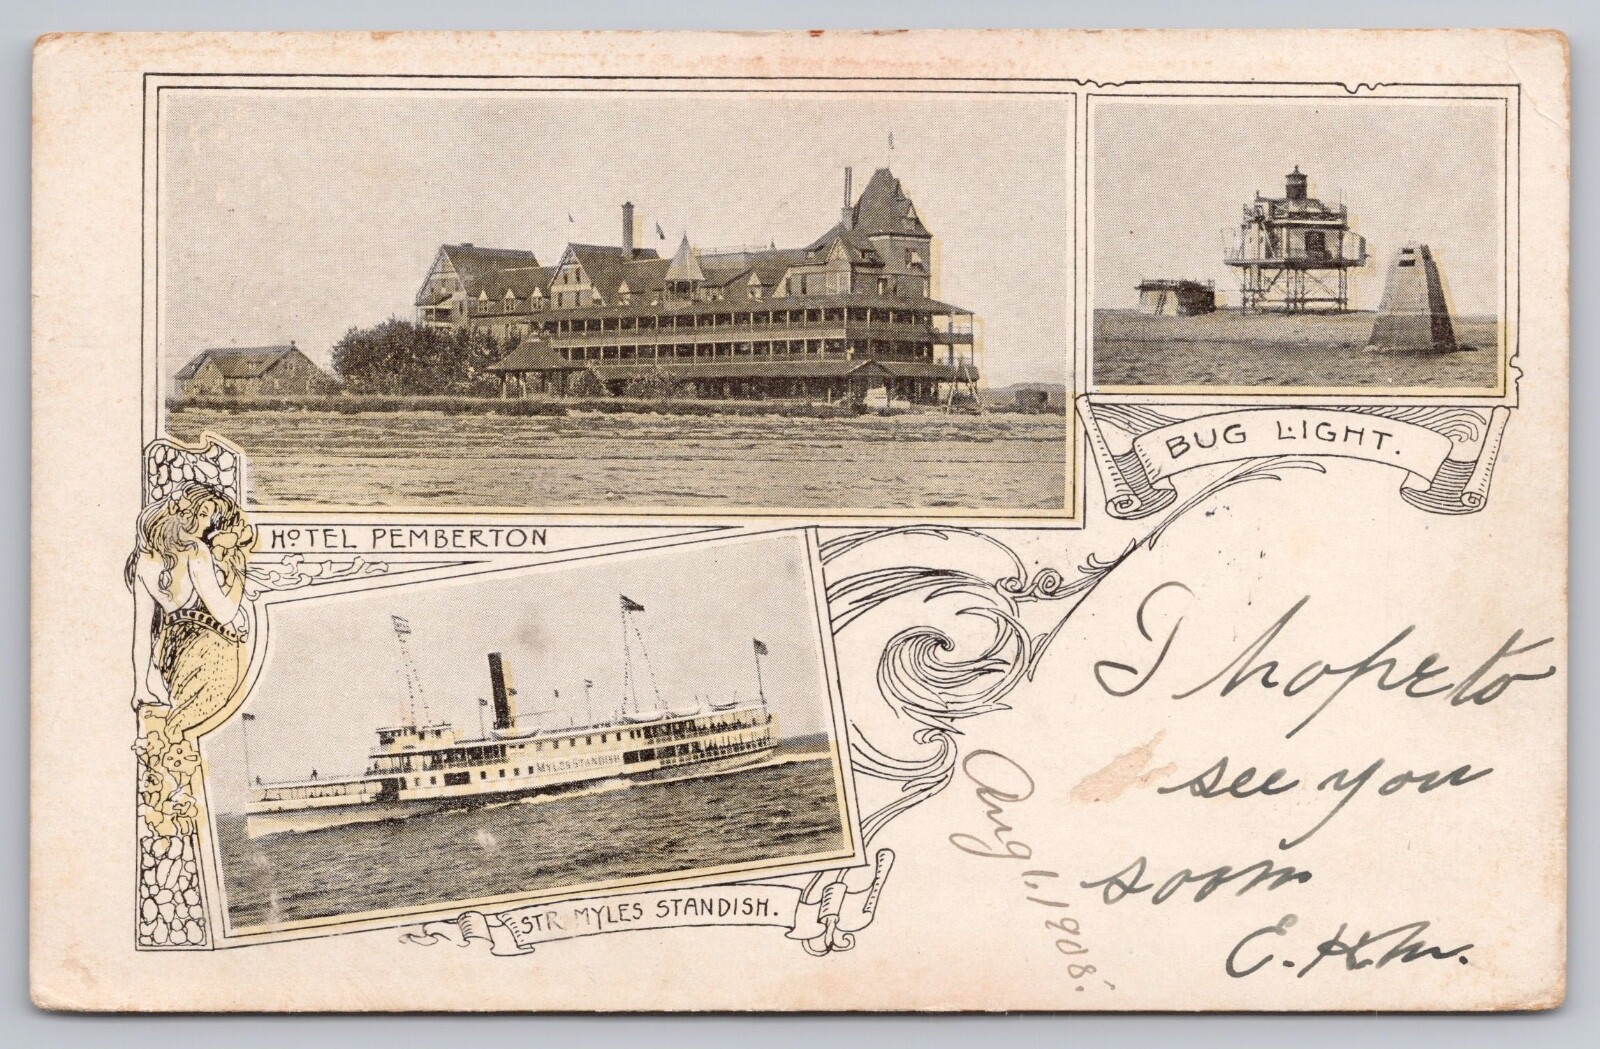 BUG LIGHT.
HOTEL PEMBERTON
MYLES STANDISH
STR. MYLES STANDISH.
I hope to
see you
soon
E. H. M.
Aug 1, 1908.